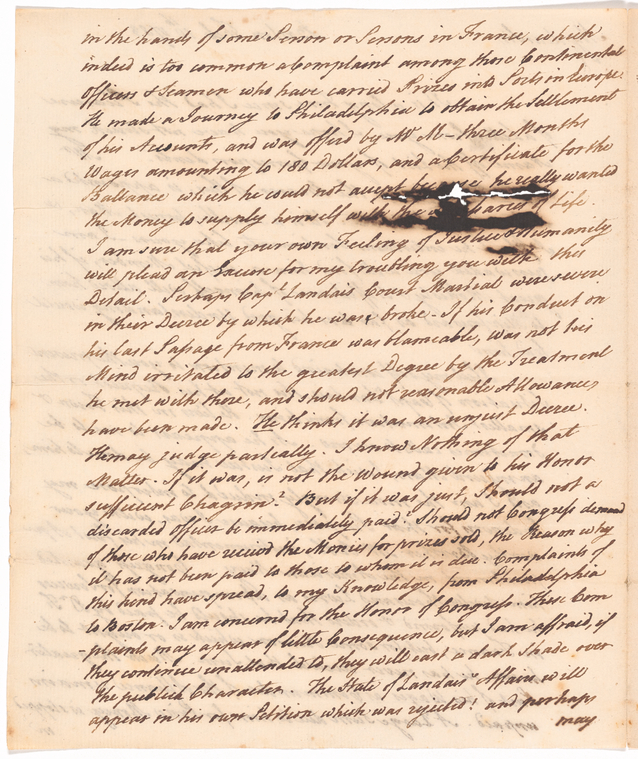 in the hands of some Person or Persons in France, which
indeed is too common a Complaint among those Continental
Officers & Seamen who have carried Prizes into Ports in Europe.
He made a Journey to Philadelphia to obtain the Settlement
of his Accounts, and was offerd by Mr M- three Months
Wages amounting to 180 Dollars, and a Certificate for the
Ballance which he could not accept because he really wanted
the Money to supply himself with the of Life.
I am sure that your own Feeling of Justice & Humanity
will plead an Excuse for my troubling you with this
Detail. Perhaps Capt Landais Court Martial were severe
in their Decree by which he was broke - If his Conduct on
his last Passage from France was blameable, was not his
Mind irritated to the greatest Degree by the Treatment
he met with there, and should not reasonable Allowances
have been made. He thinks it was an unjust Decree.
He may judge partially. I know Nothing of that
Matter. If it was, is not the Wound given to his Honor
sufficient Chagrin? But if it was just, Should not a
discarded officer be immediately paid? Should not Congress demand
of those who have receivd the Monies for prizes sold, the Reason why
it has not been paid to those to whom it is due. Complaints of
this kind have spread, to my Knowledge, from Philadelphia
to Boston. I am concernd for the Honor of Congress. These Com
-plaints may appear of little Consequence, but I am affraid, if
they continue unattended to, they will cast a dark Shade over
the publick Character. The State of Landais' Affairs will
appear in his own Petition which was rejected! and perhaps
may